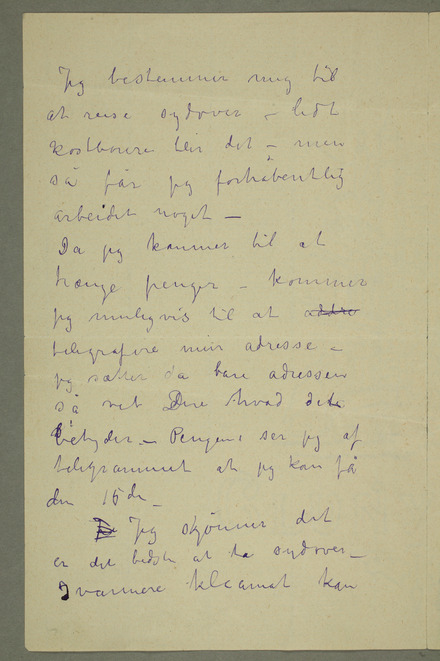 Jeg bestemmer mig til
at reise sydover – lidt
kostbarere blir det – men
så får jeg forhåbentlig
arbeidet noget –
Da jeg kommer til at
trænge penger – kommer
jeg muligvis til at
telegrafere min adresse –
jeg sætter da bare adressen
så vet Dere hvad det
betyder – Pengene ser jeg af
telegrammet at jeg kan få
den 15de –
Jeg skjønner det
er det bedste at ta sydover –
I varmere kleamat kan